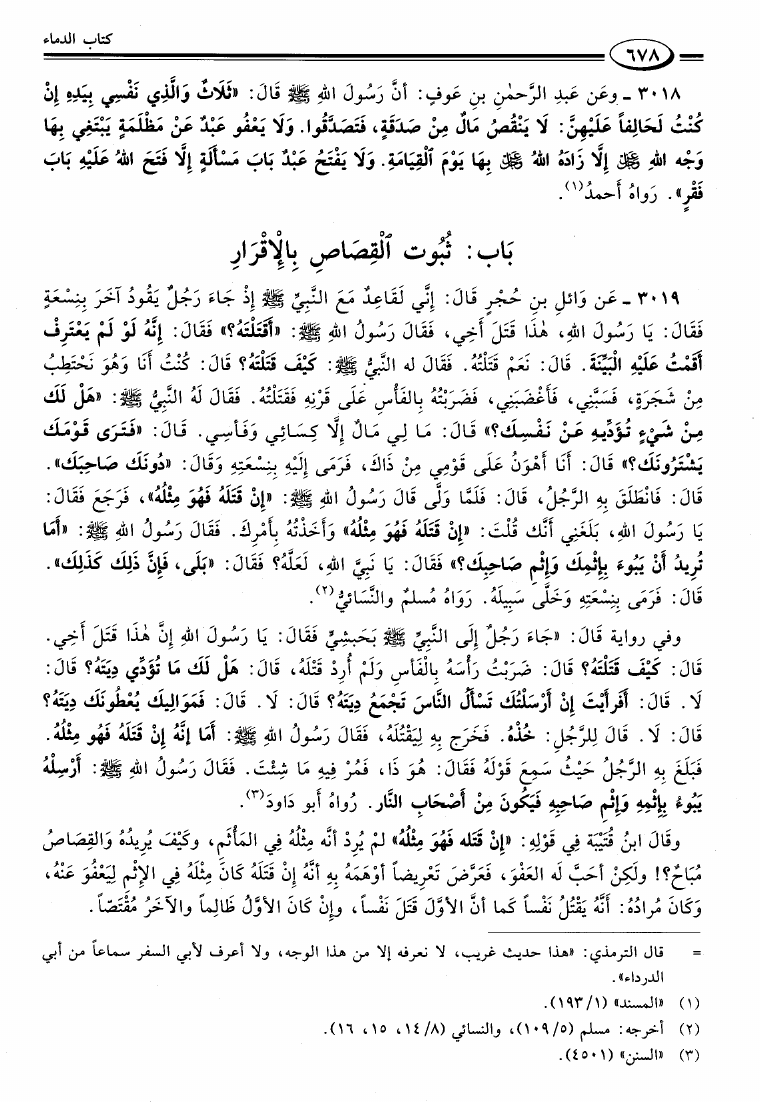 كتاب الدماء
٦٧٨
٣٠١٨ ـ وعَن عَبدِ الرَّحمٰنِ بنِ عَوفٍ: أنَّ رَسُولَ اللهِ ﷺ قَالَ: «ثَلَاثٌ وَالَّذِي نَفْسِي بِيَدِهِ إِنْ
كُنْتُ لَحَالِفاً عَلَيْهِنَّ: لَا يَنْقُصُ مَالٌ مِنْ صَدَقَةٍ، فَتَصَدَّقُوا. وَلَا يَعْفُو عَبْدٌ عَنْ مَظْلَمَةٍ يَبْتَغِي بِهَا
وَجْه اللهِ ﷻ إِلَّا زَادَهُ اللهُ ﷻ بِهَا يَوْمَ ٱلْقِيَامَةِ. وَلَا يَفْتَحُ عَبْدٌ بَابَ مَسْأَلَةٍ إِلَّا فَتَحَ اللهُ عَلَيْهِ بَابَ
فَقْرٍ». رَوَاهُ أَحمدُ(١).
بَاب: ثُبُوت ٱلْقِصَاصِ بِالْإِقْرَارِ
٣٠١٩ ـ عَن وَائِلِ بنِ حُجْرٍ قَالَ: إِنِّي لَقَاعِدٌ مَعَ النَّبِيِّ ﷺ إِذْ جَاءَ رَجُلٌ يَقُودُ آخَرَ بِنِسْعَةٍ
فَقَالَ: يَا رَسُولَ اللهِ، هٰذَا قَتَلَ أَخِي، فَقَالَ رَسُولُ اللهِ ﷺ: «أَقَتَلْتَهُ؟» فَقَالَ: إِنَّهُ لَوْ لَمْ يَعْتَرِفْ
أَقَمْتُ عَلَيْهِ الْبَيِّنَةَ. قَالَ: نَعَمْ قَتَلْتُهُ. فَقَالَ له النَّبيُّ ﷺ: كَيْفَ قَتَلْتَهُ؟ قَالَ: كُنْتُ أَنَا وَهُوَ نَحْتَطِبُ
مِنْ شَجَرَةٍ، فَسَبَّنِي، فَأَغْضَبَنِي، فَضَرَبْتُهُ بِالفَأْسِ عَلَى قَرْنِهِ فَقَتَلْتُهُ. فَقَالَ لَهُ النَّبِيُّ ﷺ: «هَلْ لَكَ
مِنْ شَيْءٍ تُؤَدِّيهِ عَنْ نَفْسِكَ؟» قَالَ: مَا لِي مَالٌ إِلَّا كِسَائِي وَفَأْسِي. قَالَ: «فَتَرَى قَوْمَكَ
يَشْتَرُونَكَ؟» قَالَ: أَنَا أَهْوَنُ عَلَى قَوْمِي مِنْ ذَاكَ، فَرَمَى إِلَيْهِ بِنِسْعَتِهِ وَقَالَ: «دُونَكَ صَاحِبَكَ».
قَالَ: فَانْطَلَقَ بِهِ الرَّجُلُ، قَالَ: فَلَمَّا وَلَّى قَالَ رَسُولُ اللهِ ﷺ: «إِنْ قَتَلَهُ فَهُوَ مِثْلُهُ»، فَرَجَعَ فَقَالَ:
يَا رَسُولَ اللهِ، بَلَغَنِي أَنَّكَ قُلْتَ: «إِنْ قَتَلَهُ فَهُوَ مِثْلُهُ» وَأَخَذْتُهُ بِأَمْرِكَ. فَقَالَ رَسُولُ اللهِ ﷺ: «أَمَا
تُرِيدُ أَنْ يَبُوءَ بِإِثْمِكَ وَإِثْمِ صَاحِبِكَ؟» فَقَالَ: يَا نَبِيَّ اللهِ، لَعَلَّهُ؟ فَقَالَ: «بَلَى، فَإِنَّ ذلِكَ كَذَلِكَ».
قَالَ: فَرَمَى بِنِسْعَتِهِ وَخَلَّى سَبِيلَهُ. رَوَاهُ مُسلمٌ والنَّسَائيُّ(٢).
وفي رواية قَالَ: «جَاءَ رَجُلٌ إِلَى النَّبِيِّ ﷺ بَحَبَشِيٍّ فَقَالَ: يَا رَسُولَ اللهِ إِنَّ هٰذَا قَتَلَ أَخِي.
قَالَ: كَيْفَ قَتَلْتَهُ؟ قَالَ: ضَرَبْتُ رَأْسَهُ بِالْفَأْسِ وَلَمْ أُرِدْ قَتْلَهُ، قَالَ: هَلْ لَكَ مَا تُؤَدِّي دِيَتَهُ؟ قَالَ:
لَا. قَالَ: أَفَرَأَيْتَ إِنْ أَرْسَلْتُكَ تَسْأَلُ النَّاسَ تَجْمَعُ دِيَتَهُ؟ قَالَ: لَا. قَالَ: فَمَوَالِيكَ يُعْطُونَكَ دِيَتَهُ؟
قَالَ: لَا. قَالَ لِلرَّجُلِ: خُذْهُ. فَخَرَج بِهِ لِيَقْتُلَهُ، فَقَالَ رَسُولُ اللهِ ﷺ: أَمَا إِنَّهُ إِنْ قَتَلَهُ فَهُو مِثْلُهُ.
فَبَلَغَ بِهِ الرَّجُلُ حَيْثُ سَمِعَ قَوْلَهُ فَقَالَ: هُوَ ذَا، فَمُرْ فِيهِ مَا شِئْتَ. فَقَالَ رَسُولُ اللهِ ﷺ: أَرْسِلْهُ
يَبُوءُ بِإِثْمِهِ وَإِثْمِ صَاحِبِهِ فَيَكُونَ مِنْ أَصْحَابِ النَّارِ. رَوَاهُ أبو دَاودَ(٣).
وقَالَ ابنُ قُتَيْبَةَ فِي قَوْلِهِ: «إِنْ قَتَله فَهُوَ مِثْلُهُ» لمْ يُرِدْ أنَّه مِثْلُهُ فِي المَأْثَمِ، وكَيْفَ يُرِيدُهُ والقِصَاصُ
مُبَاحٌ؟! ولَكِنْ أحَبَّ لَه العَفْوَ، فَعَرَّضَ تَعْرِيضاً أوْهَمَهُ بِهِ أنَّهُ إِنْ قَتَلَهُ كَانَ مِثْلَهُ في الإثْمِ لِيَعْفُوَ عَنْهُ،
وَكَانَ مُرادُهُ: أنَّهُ يَقْتُلُ نَفْساً كَما أنَّ الأوَّلَ قَتَلَ نَفْساً، وإنْ كَانَ الأوَّلُ ظَالِماً والآخَرُ مُقْتَصّاً.
= قال الترمذي: «هذا حديث غريب، لا نعرفه إلا من هذا الوجه، ولا أعرف لأبي السفر سماعاً من أبي
الدرداء».
(١) «المسند» (١/ ١٩٣).
(٢) أخرجه: مسلم (٥/ ١٠٩)، والنسائي (٨/ ١٤، ١٥، ١٦).
(٣) «السنن» (٤٥٠١).